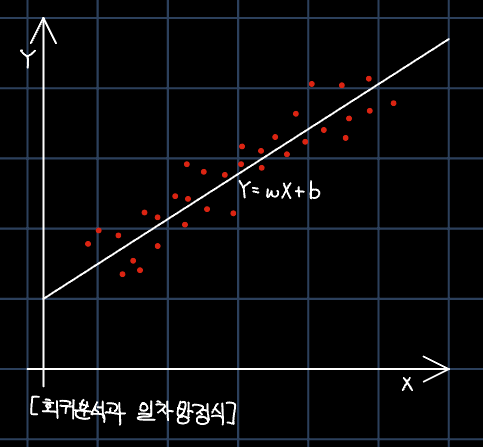 Y
Y = wX + b
X
[회귀분석과 일차방정식]